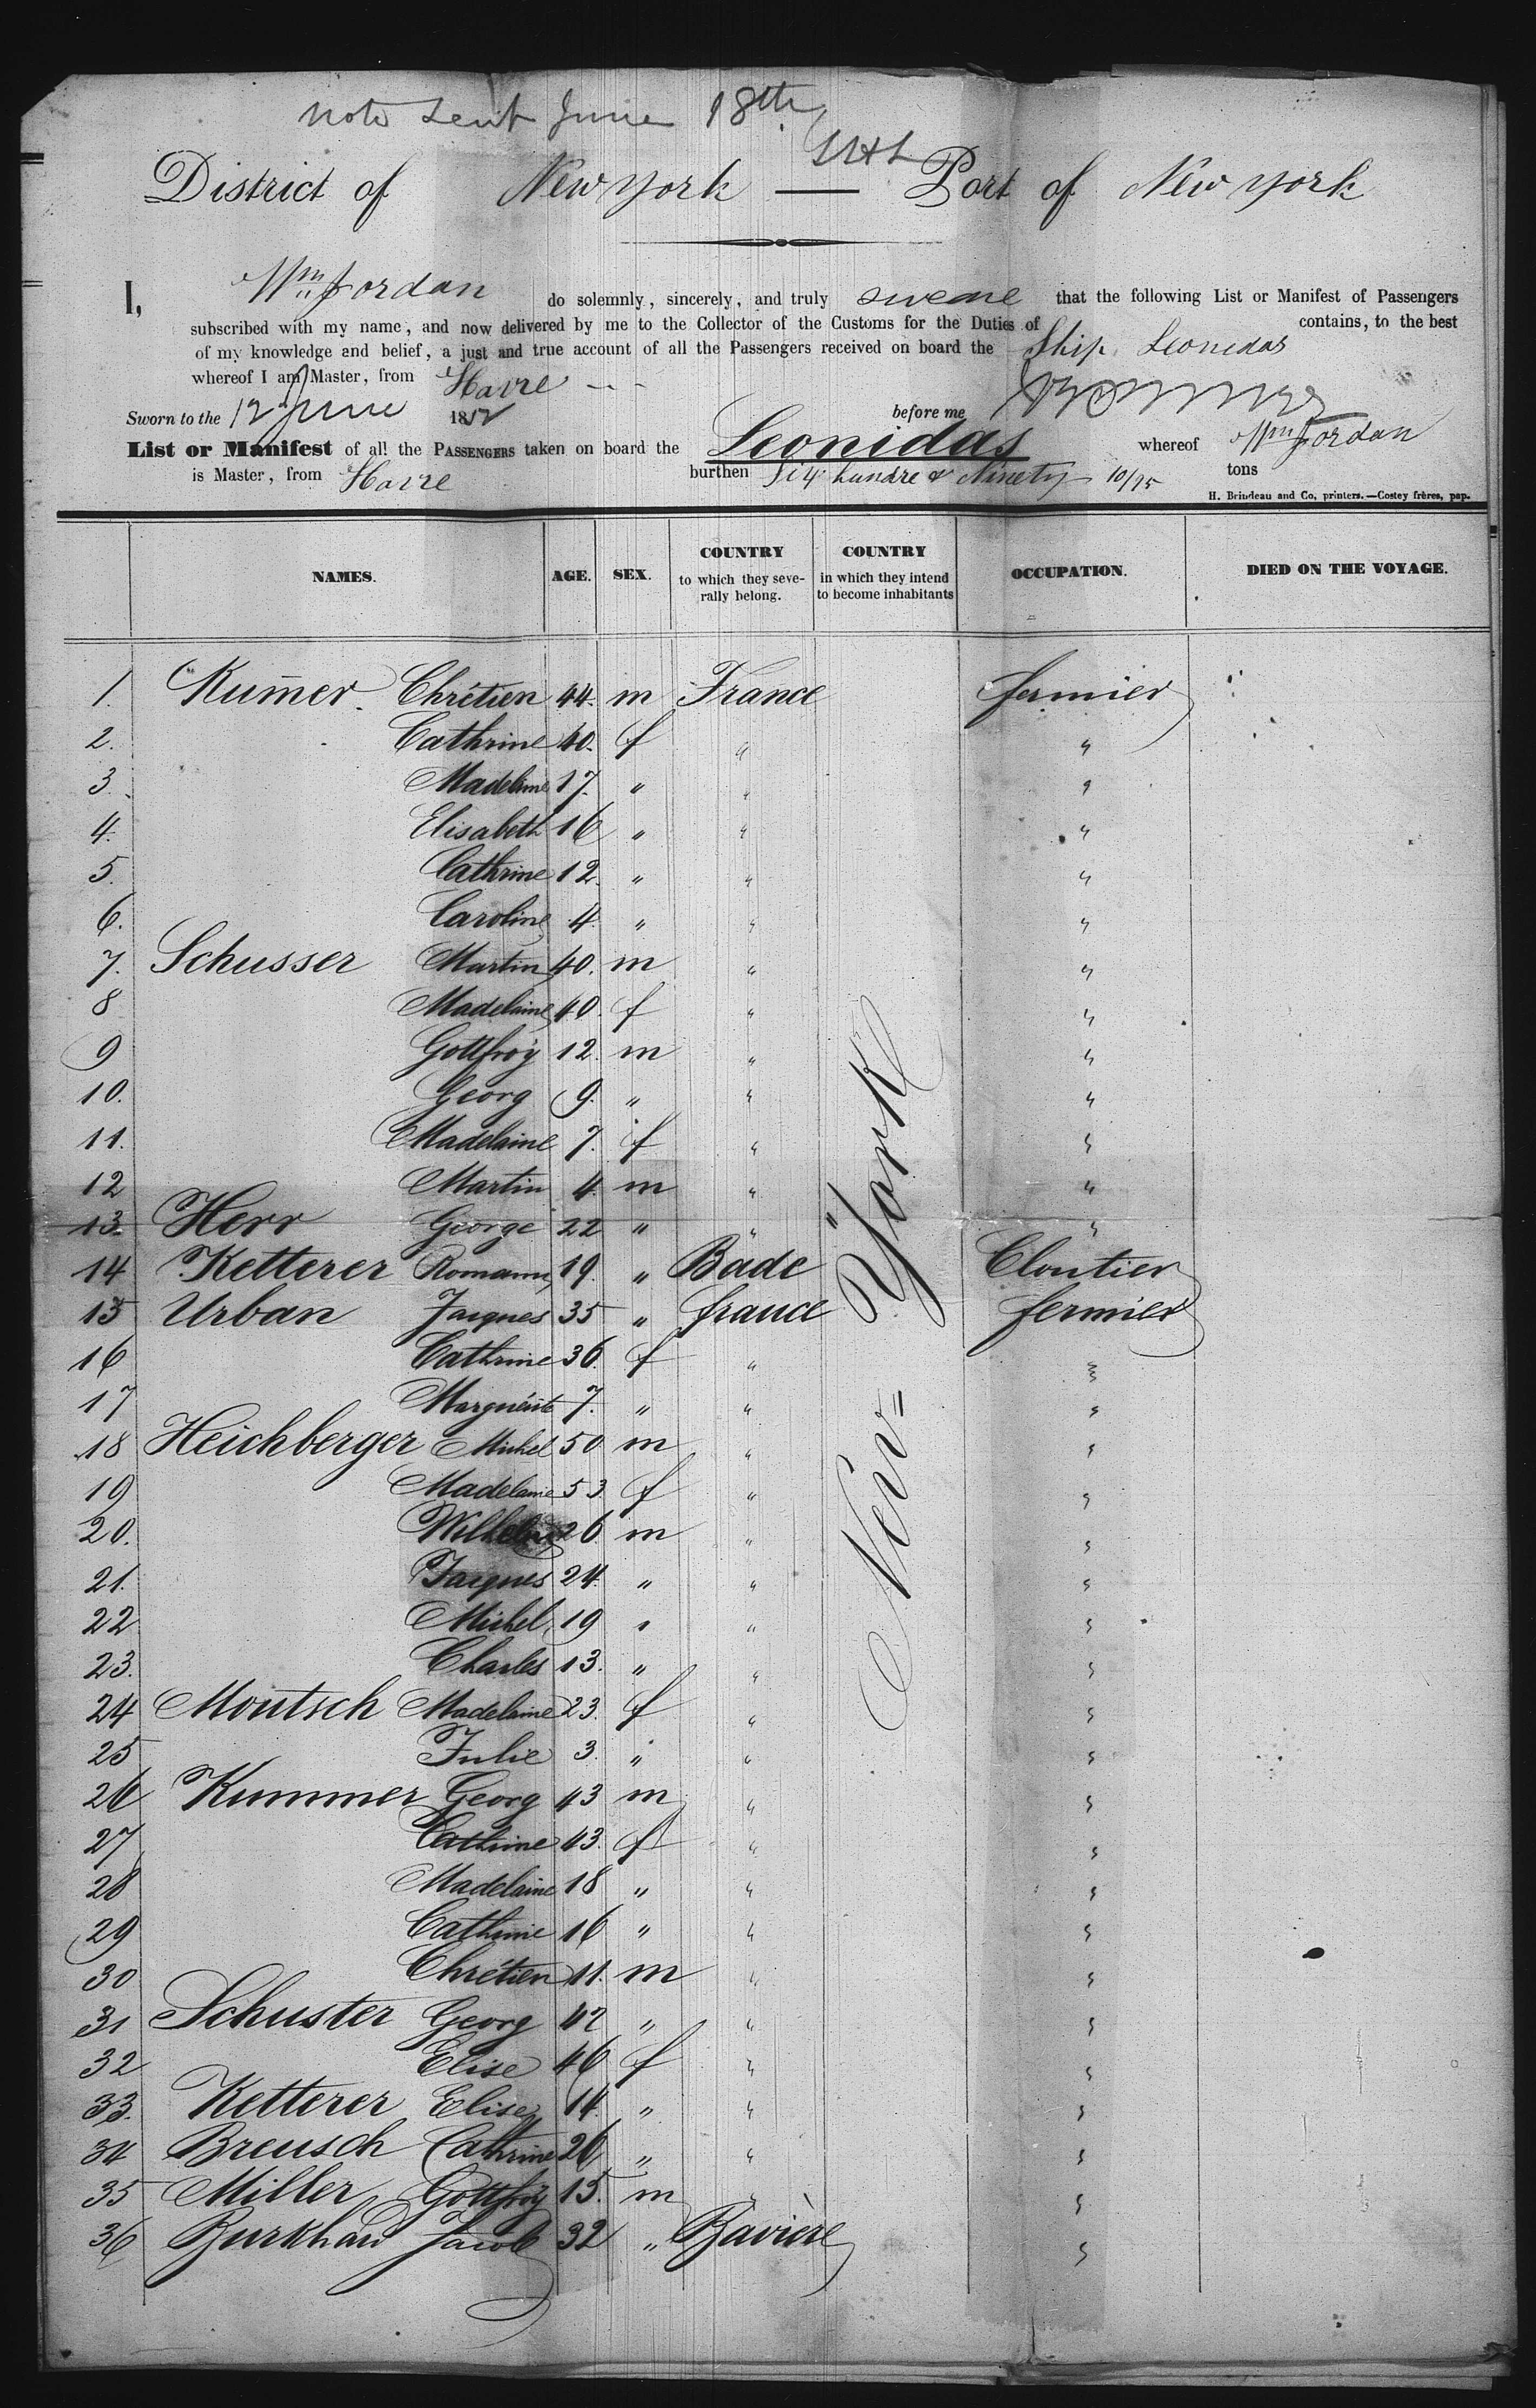 note sent June 18th
District of New york — Port of New york
I, Wm Jordan do solemnly, sincerely, and truly sweare that the following List or Manifest of Passengers
subscribed with my name, and now delivered by me to the Collector of the Customs for the Duties of contains, to the best
of my knowledge and belief, a just and true account of all the Passengers received on board the Ship Leonidas
whereof I am Master, from Havre
Sworn to the 12 June 1852 before me
List or Manifest of all the PASSENGERS taken on board the Leonidas whereof Wm Jordan
is Master, from Havre burthen Six hundre & Ninety 10/95 tons
H. Brindeau and Co, printers.—Costey frères, pap.
NAMES. AGE. SEX. COUNTRY to which they severally belong. COUNTRY in which they intend to become inhabitants OCCUPATION. DIED ON THE VOYAGE.
1. Kum̄er Chrétien 44 m France fermier
2. Cathrine 40 f " "
3. Madelaine 17 " " "
4. Elisabeth 16 " " "
5. Cathrine 12 " " "
6. Caroline 4 " " "
7. Schusser Martin 40. m " "
8 Madelaine 40 f " "
9 Gottfroy 12. m " "
10. Georg 9. " " "
11. Madelaine 7. f " "
12 Martin 4. m " "
13. Herr George 22 " " "
14 Ketterer Romann 19. " Bade Cloutier
15 Urban Jacques 35 " france fermier
16 Cathrine 36 f " "
17 Marguérite 7. " " "
18 Heichberger Michel 50 m " "
19 Madelaine 53 f " "
20. Wilhelm 26 m " "
21. Jacques 24 " " "
22 Michel 19 " " "
23. Charles 13. " " "
24 Moutsch Madelaine 23. f " "
25 Julie 3. " " "
26 Kummer Georg 43 m " "
27 Cathrine 43. f " "
28 Madelaine 18 " " "
29 Cathrine 16 " " "
30 Chrétien 11. m " "
31 Schuster Georg 42 " " "
32 Elise 46 f " "
33. Ketterer Elise 14. " " "
34 Breusch Cathrine 26 " " "
35 Miller Gottfroy 15. m " "
36 Burkhard Jacob 32 " Bavière "
New-York